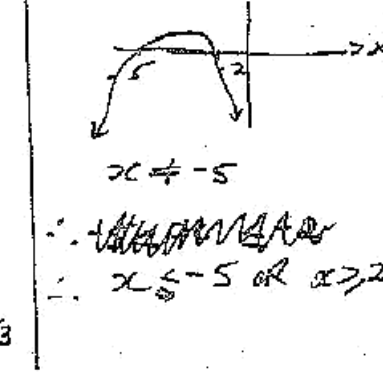 > x
-5 -2
x ≠ -5
∴
∴ x ≤ -5 or x ≥ 2
3